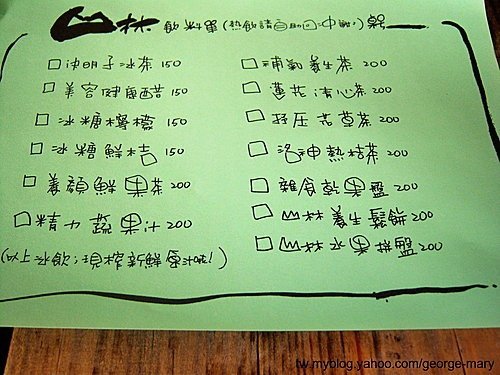 山林 飲料單(熱飲請自助回沖喲!)
□決明子冰茶 150
□美容健康醋 150
□冰糖檸檬 150
□冰糖鮮桔 150
□養顏鮮果茶 200
□精力蔬果汁 200
(以上冰飲;現榨新鮮原汁呢!)
□補氣養生茶 200
□蓮花清心茶 200
□紓壓花草茶 200
□洛神熱桔茶 200
□雜食乾果盤 200
□山林養生鬆餅 200
□山林水果拼盤 200
tw.myblog.yahoo.com/george-mary